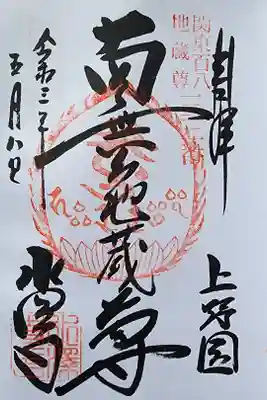 奉拝
上野国
関東百八
地蔵尊
南無地蔵尊
令和三年
五月八日